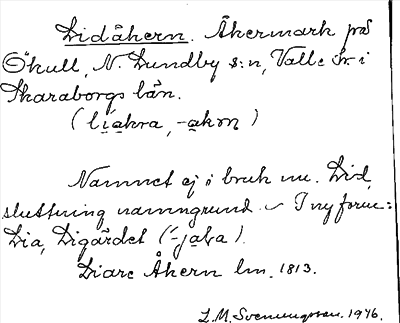 Lidåkern. Åkermark på
Ökull, N. Lundby s:n, Valle hr i
Skaraborgs län.
(li̱akra, -a̱kən)
Namnet ej i bruk nu. Lid,
sluttning namngrund. I ny form:
Lia, Ligärdet
Liare Åkern lm. 1813.
L.M. Svenungsson. 1946.